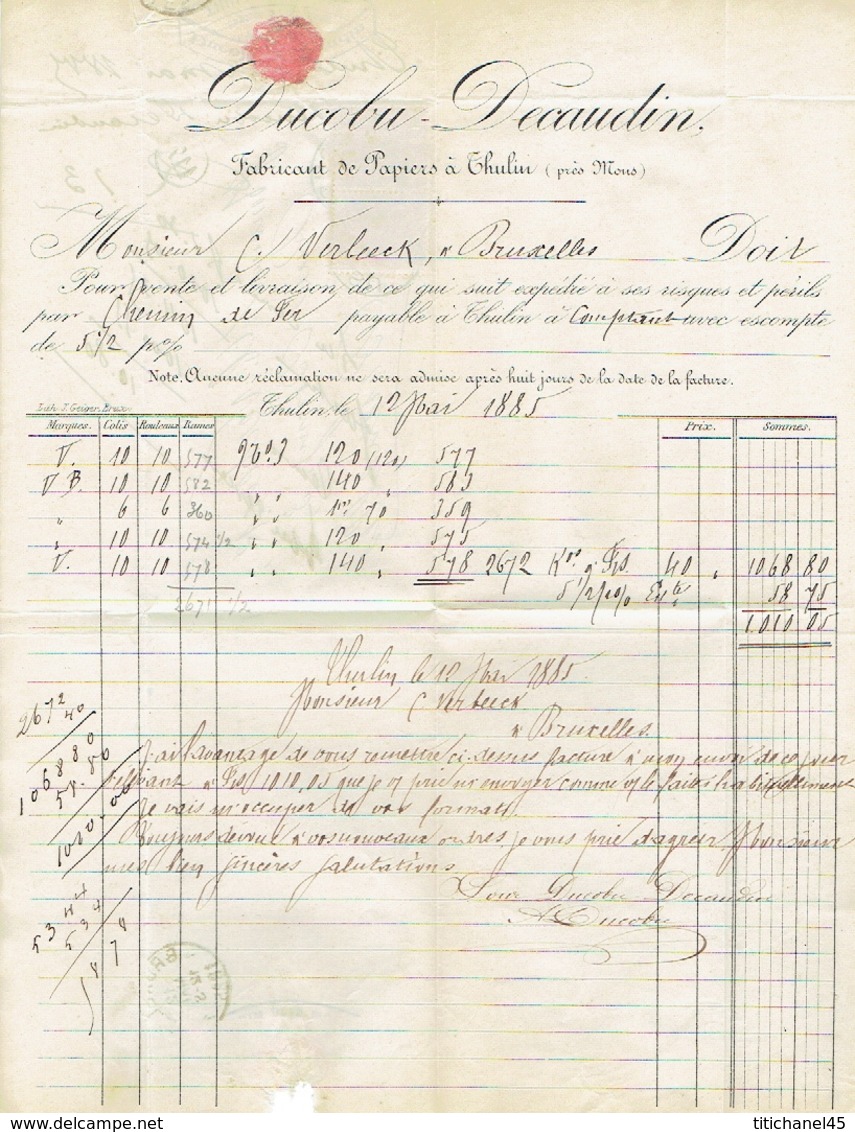 Ducobu-Decaudin.
Fabricant de Papiers à Thulin (près Mons)
Monsieur C. Verbeeck, à Bruxelles Doit
Pour vente et livraison de ce qui suit expédié à ses risques et périls
par Chemin de Fer payable à Thulin à Comptant avec escompte
de 5 1/2 p%
Note. Aucune réclamation ne sera admise après huit jours de la date de la facture.
Lith. J. Geiger, Brux. Thulin, le 12 Mai 1885
Marques. Colis Rouleaux Rames Prix. Sommes.
V. 10 10 577 120 (120) 577
V B. 10 10 582 " " 140 " 583
" 6 6 360 " " 70 359
" 10 10 574 1/2 " " 120 575
V. 10 10 578 " " 140 " 578 2672 Kos à Frs 40 " 1068 80
5 1/2 % Escte 58 75
2671 1/2 1.010 05
Thulin le 12 Mai 1885.
Monsieur C Verbeeck
à Bruxelles.
2672
40
106880
58.80
1010.00
J'ai l'avantage de vous remettre ci-dessus facture à mon envoi de ce jour
s'élevant à Frs 1010,05 que je vs prie m'envoyer comme vs le faites habituellement
Je vais m'occuper de vos formats.
Toujours dévoué à vos nouveaux ordres, je vous prie d'agréer Monsieur
mes bien sincères salutations
Pour Ducobu Decaudin
A Ducobu
5344
534
5878
titichanel45